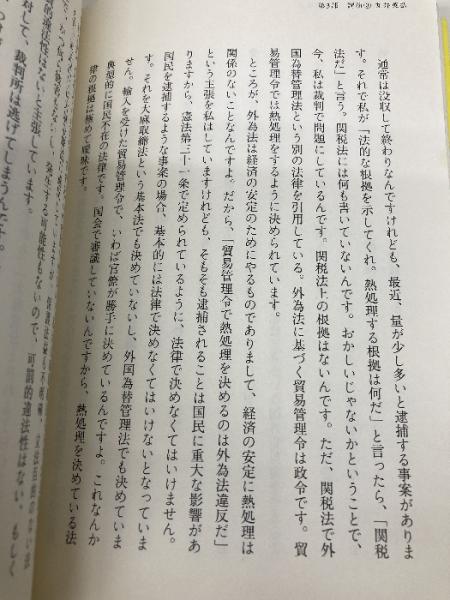 通常は没収して終わりなんですけれども、最近、量が少し多いと逮捕する事案がありま
す。それで私が「法的な根拠を示してくれ。熱処理する根拠は何だ」と言ったら、「関税
法だ」と言う。関税法には何も書いていないんです。おかしいじゃないかということで、
今、私は裁判で問題にしているんです。関税法上の根拠はないんです。ただ、関税法で外
国為替管理法という別の法律を引用している。外為法に基づく貿易管理令は政令です。貿
易管理令では熱処理をするように決められています。
ところが、外為法は経済の安定のためにやるものでありまして、経済の安定に熱処理は
関係のないことなんですよ。だから、「貿易管理令で熱処理を決めるのは外為法違反だ」
という主張を私はしていますけれども、そもそも逮捕されることは国民に重大な影響があ
りますから、憲法第三十一条で定められているように、法律で決めなくてはいけません。
国民を逮捕するような事案の場合、基本的には法律で決めなくてはいけないとなっていま
す。それを大麻取締法という基本法でも決めていないし、外国為替管理法でも決めていま
せん。輸入を受けた貿易管理令で、いわば官僚が勝手に決めているんですよ。これなんか
典型的に国民不在の法律です。国会で審議していないんですから、熱処理を決めている法
律の根拠は極めて曖昧です。
可罰的違法性はない、もしく
対して、裁判所は逃げてしまうんです。